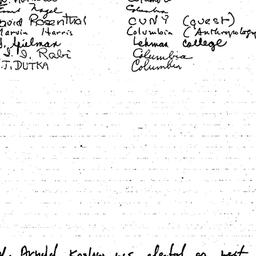 Ernest Nagel Columbia
David Rosenthal CUNY (guest)
Marvin Harris Columbia (Anthropology
J. Spielman Lehman College
I. I. Rabi Columbia
J. DUTKA Columbia
Arnold Koslow was elected as next